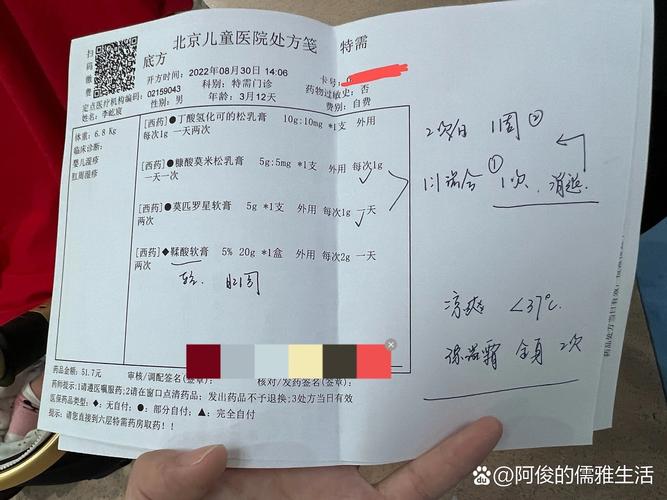 扫码缴费
北京儿童医院处方笺 特需
底方
开方时间：2022年08月30日 14:06
卡号：
定点医疗机构编码：02159043
科别：特需门诊
药物过敏史：否
姓名：李虻宸
性别：男
年龄：3月12天
费别：自费
体重：6.8 Kg
临床诊断：
婴儿湿疹
肛周湿疹
[西药]●丁酸氢化可的松乳膏 10g:10mg *1支 外用
每次1g 一天两次
[西药]●糠酸莫米松乳膏 5g:5mg *1支 外用 每次1g
一天一次
[西药]●莫匹罗星软膏 5g *1支 外用 每次1g 一天
两次
[西药]◆鞣酸软膏 5% 20g *1盒 外用 每次2g 一天
两次
肛周
2次/日 1周 ②
1:1混合 ① 1次
凉爽 <37℃
全身 2次
药品金额：51.7元
审核/调配签名(签章)：
核对/发药签名(签章)：
药师提示:1请遵医嘱服药;2请在窗口点清药品；发出药品不予退换;3处方当日有效
医保药品类型：◆：无自付；●：部分自付；▲：完全自付
提示：请您直接到六层特需药房取药！！
药品处方当日有效
@阿俊的儒雅生活